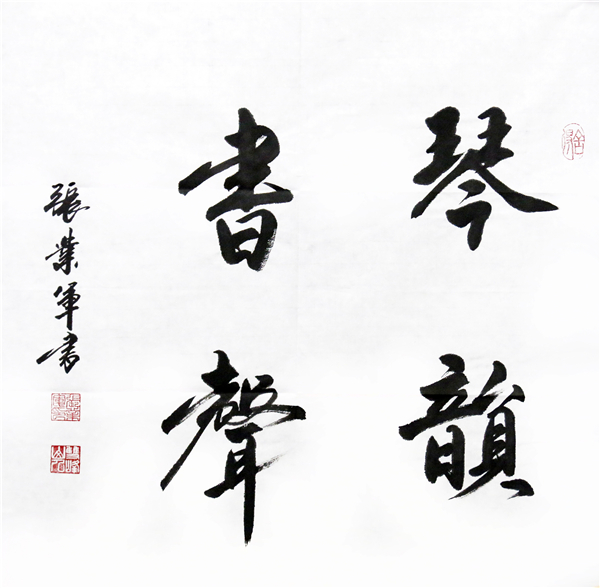 琴韻
書聲
張業軍书